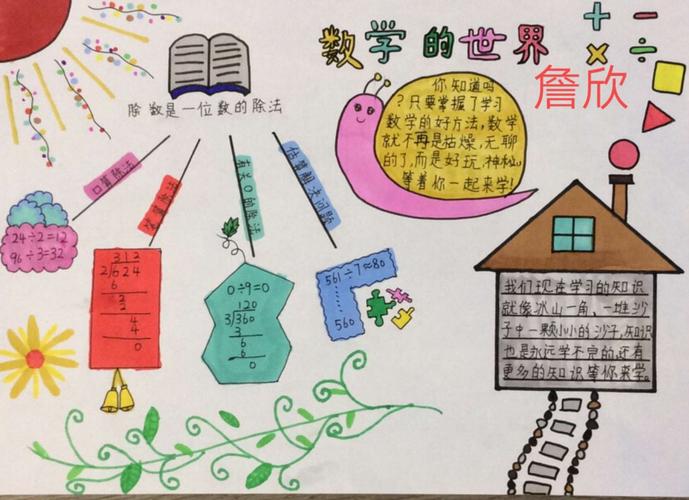 数学的世界
+ −
× ÷
詹欣
除数是一位数的除法
你知道吗
?只要掌握了学习
数学的好方法,数学
就不再是枯燥,无聊
的了,而是好玩,神秘
等着你一起来学!
口算除法
笔算除法
有关0的除法
估算解决问题
24÷2=12
96÷3=32
312
2/624
6
2
2
4
4
0
0÷9=0
120
3/360
3
6
6
0
561÷7≈80
……
560
我们现在学习的知识
就像冰山一角、一堆沙
子中一颗小小的沙子,知识
也是永远学不完的,还有
更多的知识等你来学。